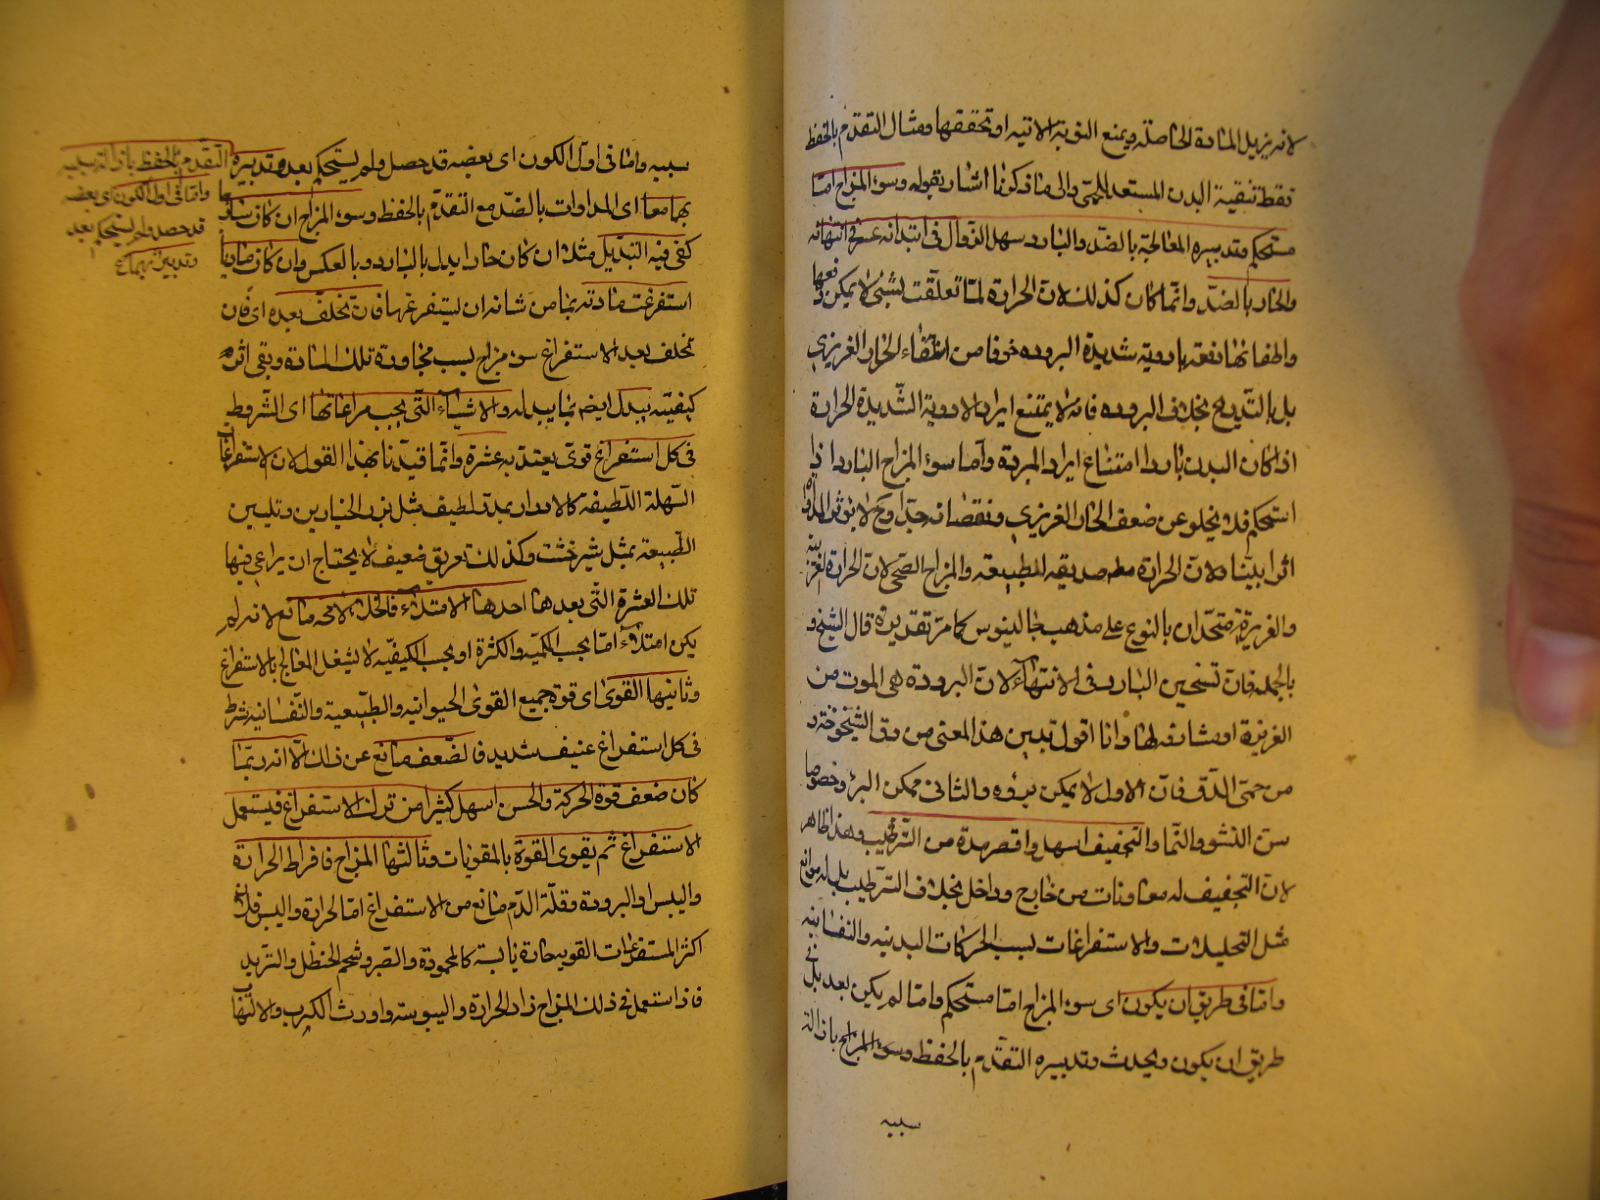 لانه يزيل المادة الحاصلة ويمنع النوبة الاتيه او تحققها ومثال التقدم بالحفظ
فقط تنقية البدن المستعد للحمى والى ما ذكرنا اشار بقوله وسوء المزاج اما
مستحكم وتدبيره المعالجة بالضد والبارد سهل الزوال فى ابتدائه عسر فى انتهائه
والحار بالضد وانما كان كذلك لان الحرارة لما تعلقت بشئ لا يمكن دفعها
واطفائها دفعة بادوية شديدة البروده خوفا من انطفاء الحار الغريزي
بل بالتدريج بخلاف البروده فانه لا يمتنع ايراد الادوية الشديدة الحرارة
اذا كان البدن باردا امتناع ايراد المبردة واما سوء المزاج البارد اذا
استحكم فلا يخلو عن ضعف الحار الغريزي ونقصانه جدا وح لا يؤثر المداواة
اثرا بينا ولان الحرارة صديقه للطبيعة والمزاج الصحى لان الحرارة الغريبة
والغريزية متحدان بالنوع على مذهب جالينوس كما مر تقديره قال الشيخ و
بالجمله فان تسخين البارد فى الانتهاء لان البرودة هى الموت من
الغريزة او مشارفه لها وانا اقول تبين هذا المعنى من دق الشيخوخة و
من حمى الدق فان الاول لا يمكن برؤه والثانى ممكن البرؤ وخصوصا
سن النشو والنما والتجفيف اسهل واقصر مدة من الترطيب وهذا ظاهر
لان التجفيف له معاونات من خارج وداخل بخلاف الترطيب بل له موانع
مثل التحليلات والاستفراغات بسبب الحركات البدنيه والنفسانيه
واما فى طريق ان يكون اى سوء المزاج اما مستحكم واما لم يكن بعد بل فى
طريق ان يكون ويحدث وتدبيره التقدم بالحفظ وسوء المزاج بازالة
سببه
سببه واما فى اول الكون اى بعضه قد حصل ولم يستحكم بعد وتدبيره
بهما معا اى المداوات بالضد مع التقدم بالحفظ وسوء المزاج ان كان ساذجا
كفى فيه التبديل مثلا ان كان حارا يبدل بالبارد وبالعكس وان كان ماديا
استفرغت مادته بما من شانه ان يستفرغها فان تخلف بعده اى فان
تخلف بعد الاستفراغ سوء مزاج بسبب مجاورة تلك المادة وبقى اثر
كيفيته يبدل ايضا بما يبدله والاشياء التى يجب مراعاتها اى الشروط
فى كل استفراغ قوى يعتد به عشرة وانما قيدنا بهذا القول لان الاستفراغات
السهلة اللطيفة كالادرار بمدر لطيف مثل بزر الخيارين وتليين
الطبيعة بمثل شيرخشت وكذلك تعريق ضعيف لا يحتاج ان يراعى فيها
تلك العشرة التى بعدها احدها الامتلاء فالخلا لا محه مانع لانه لم
يكن امتلاء اما بحسب الكمية والكثرة او بحسب الكيفيه لا يشغل المعالج بالاستفراغ
وثانيها القوى اى قوة جميع القوى الحيوانيه والطبيعية والنفسانيه شرط
فى كل استفراغ عنيف شديد فالضعف مانع عن ذلك الا انه ربما
كان ضعف قوة الحركة والحس اسهل كثيرا من ترك الاستفراغ فيستعمل
الاستفراغ ثم يقوى القوة بالمقويات وثالثها المزاج فافراط الحرارة
واليبس او البرودة وقلة الدم مانع من الاستفراغ اما الحرارة واليبس فلان
اكثر المستفرغات القويه حادة يابسة كالمحمودة والصبر وشحم الحنظل والتربد
فاذا استعمل فى ذلك المزاج زاد الحرارة واليبوسة واورث الكرب والالتهاب
التقدم بالحفظ بازالة سببه
واما فى اول الكون اى بعضه
قد حصل ولم يستحكم بعد
وتدبيره بهما معا